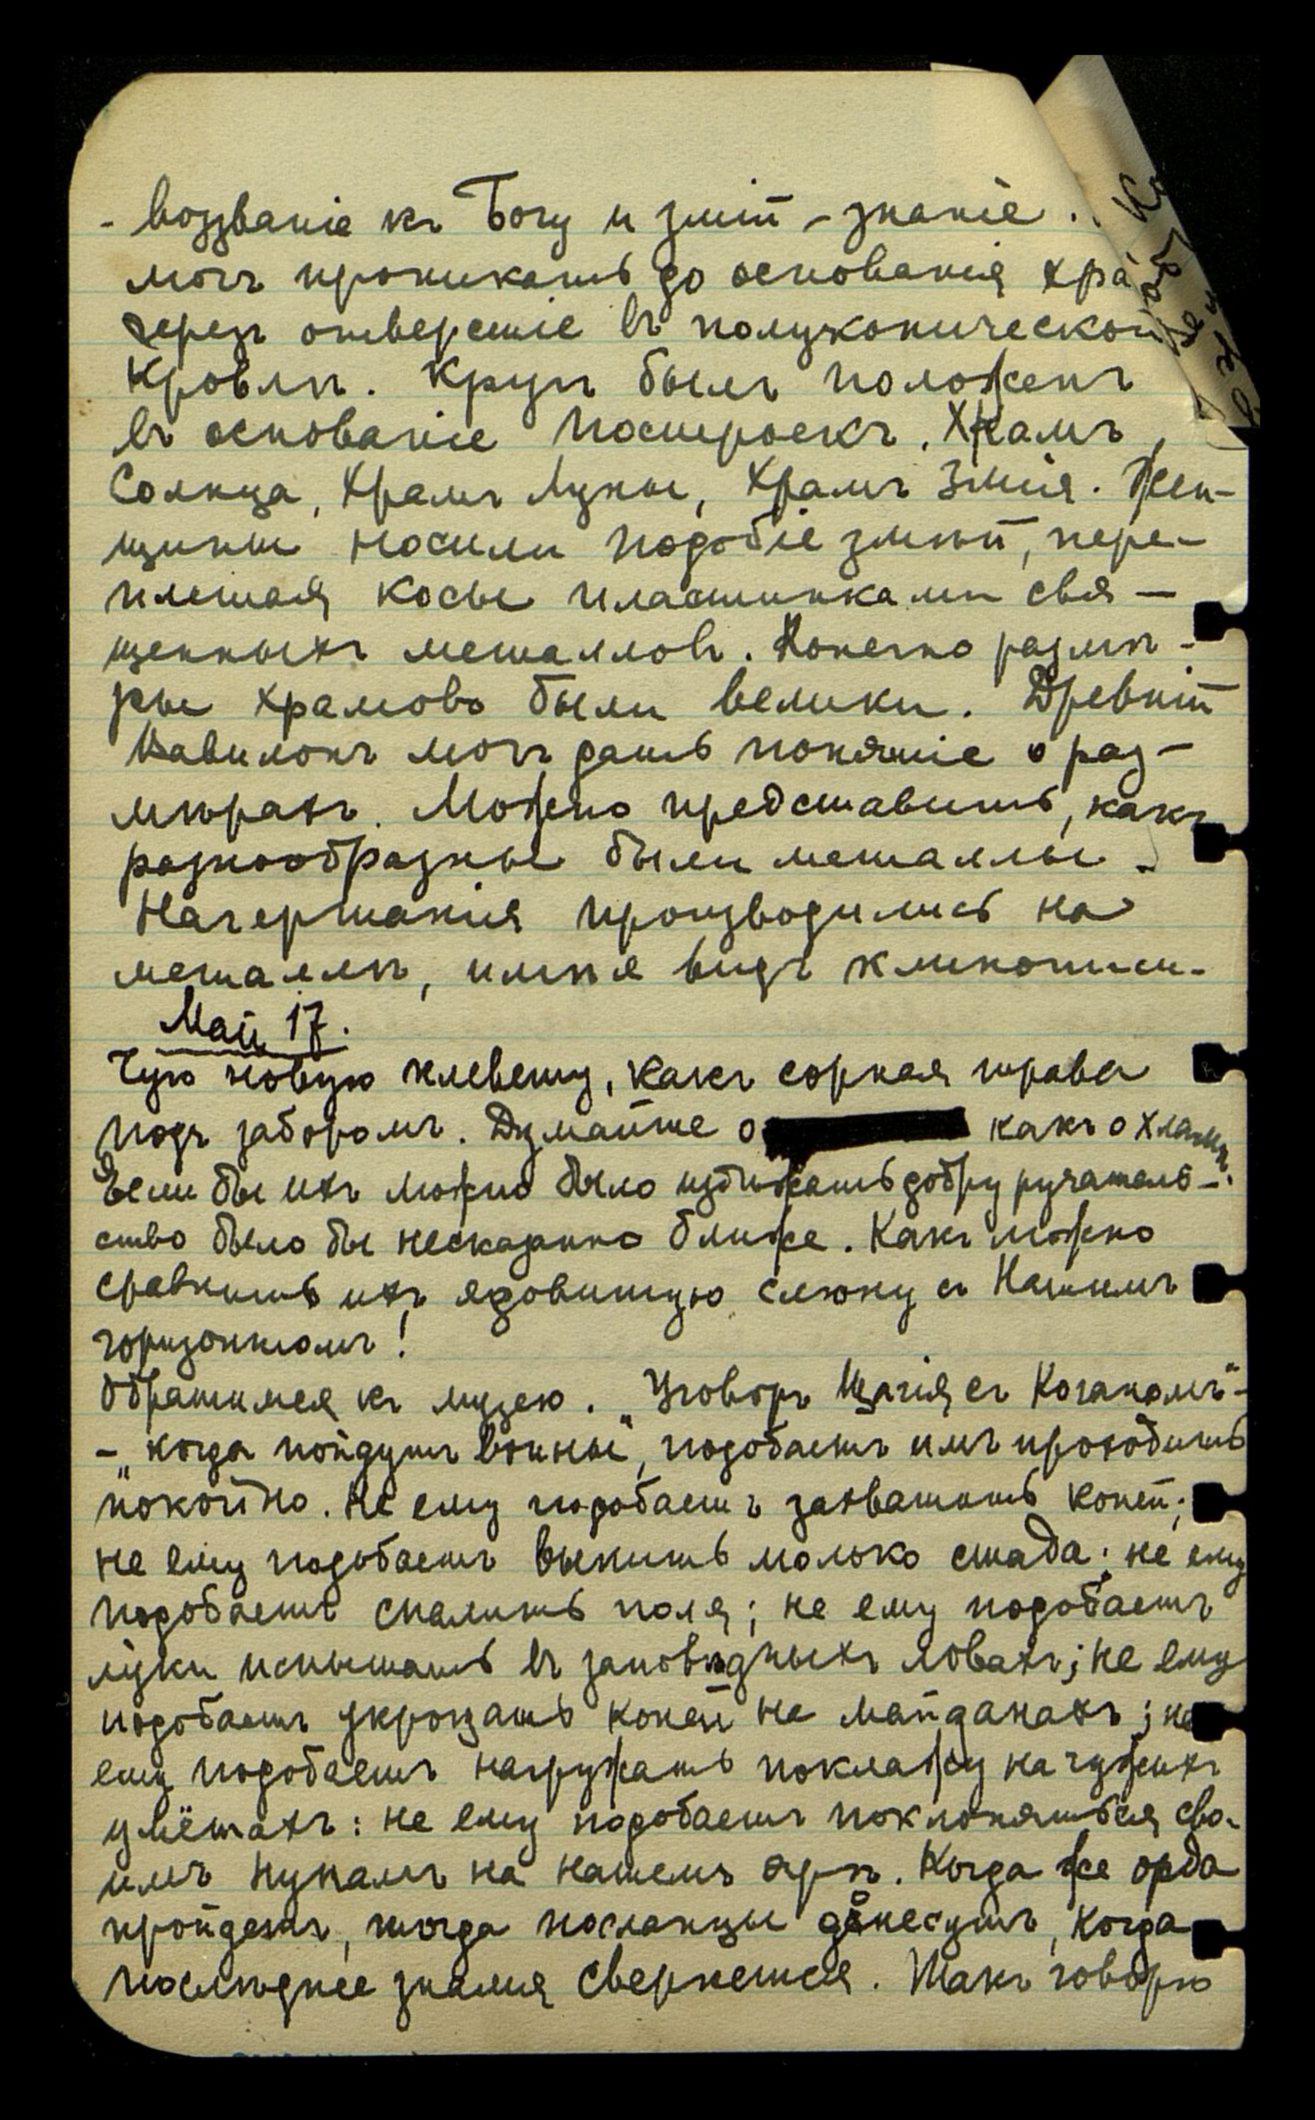 - воззваніе къ Богу и змій - знаніе.
могъ проникать до основанія хра
через отверстіе въ полуконической
кровлѣ. Кругъ былъ положенъ
въ основаніе построекъ. Храмъ
Солнца, Храмъ Луны, Храмъ Змія. Жен-
щины носили подобіе змѣй, пере-
плетая косы пластинками свя-
щенныхъ металловъ. Конечно размѣ-
ры храмовъ были велики. Древній
Вавилонъ могъ дать понятіе о раз-
мѣрахъ. Можно представить, какъ
разнообразны были металлы.
Начертанія производились на
металлѣ, имѣя видъ клинописи.
Май 17.
Чую новую клевету, какъ сорная трава
подъ заборомъ. Думайте о какъ о хламѣ.
Если бы ихъ можно было избѣжать добру ручатель-
ство было бы несказанно ближе. Какъ можно
сравнить ихъ ядовитую слюну съ Нашимъ
горизонтомъ!
Обратимся къ музею. "Уговоръ Цагія съ Коганомъ" -
- "когда пойдутъ воины, подобаетъ имъ проходить
покойно. Не ему подобаетъ захватить коней;
не ему подобаетъ выпить молоко стада; не ему
подобаетъ спалить поля; не ему подобаетъ
луки испытать въ заповѣдныхъ ловахъ; не ему
подобаетъ укрощать коней на майданахъ; не
ему подобаетъ нагружать поклажу на чужихъ
умётахъ: не ему подобаетъ поклоняться сво-
имъ на нашемъ ярѣ. Когда же орда
пройдетъ, тогда посланцы донесутъ, когда
послѣднее знамя свернется. Такъ говорю